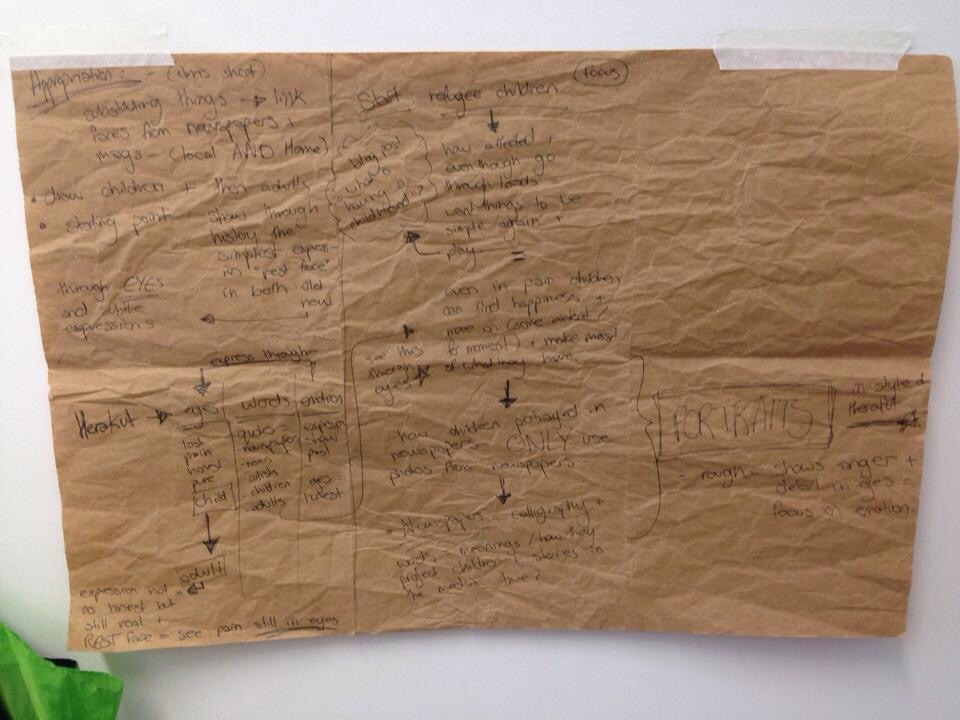 Appropriation: - (chris short)
things → link
faces from newspapers +
mags - (local AND Home)
• draw children + then adults
• starting point: show through
history the
simplest express
in "rest face"
in both old
new
through EYES
and subtle
expressions
express through
Herakut → eyes
lost
pain
honest
pure
child
adult
words
quotes
newspapers
news
artists
children
adults
emotion
expression
show
past
eyes =
honest
expression not =
so honest but
still real +
REST face = see pain still in eyes
focus
Start: refugee children
how affected +
eventhough go
through loads
want things to be
simple again +
play.
blog post
what is
having a
childhood?
even in pain children
can find happiness +
move on (some extent/
for moment) + make most
of what they have
see this
through
eyes
how children portrayed in
newspapers ONLY use
photos from newspapers
- Newspapers - calligraphy +
words, meanings / how they
project children + stories in
the media true?
PORTRAITS
in style of
Herakut
= rough = shows anger +
detail in eyes =
focus on emotion.